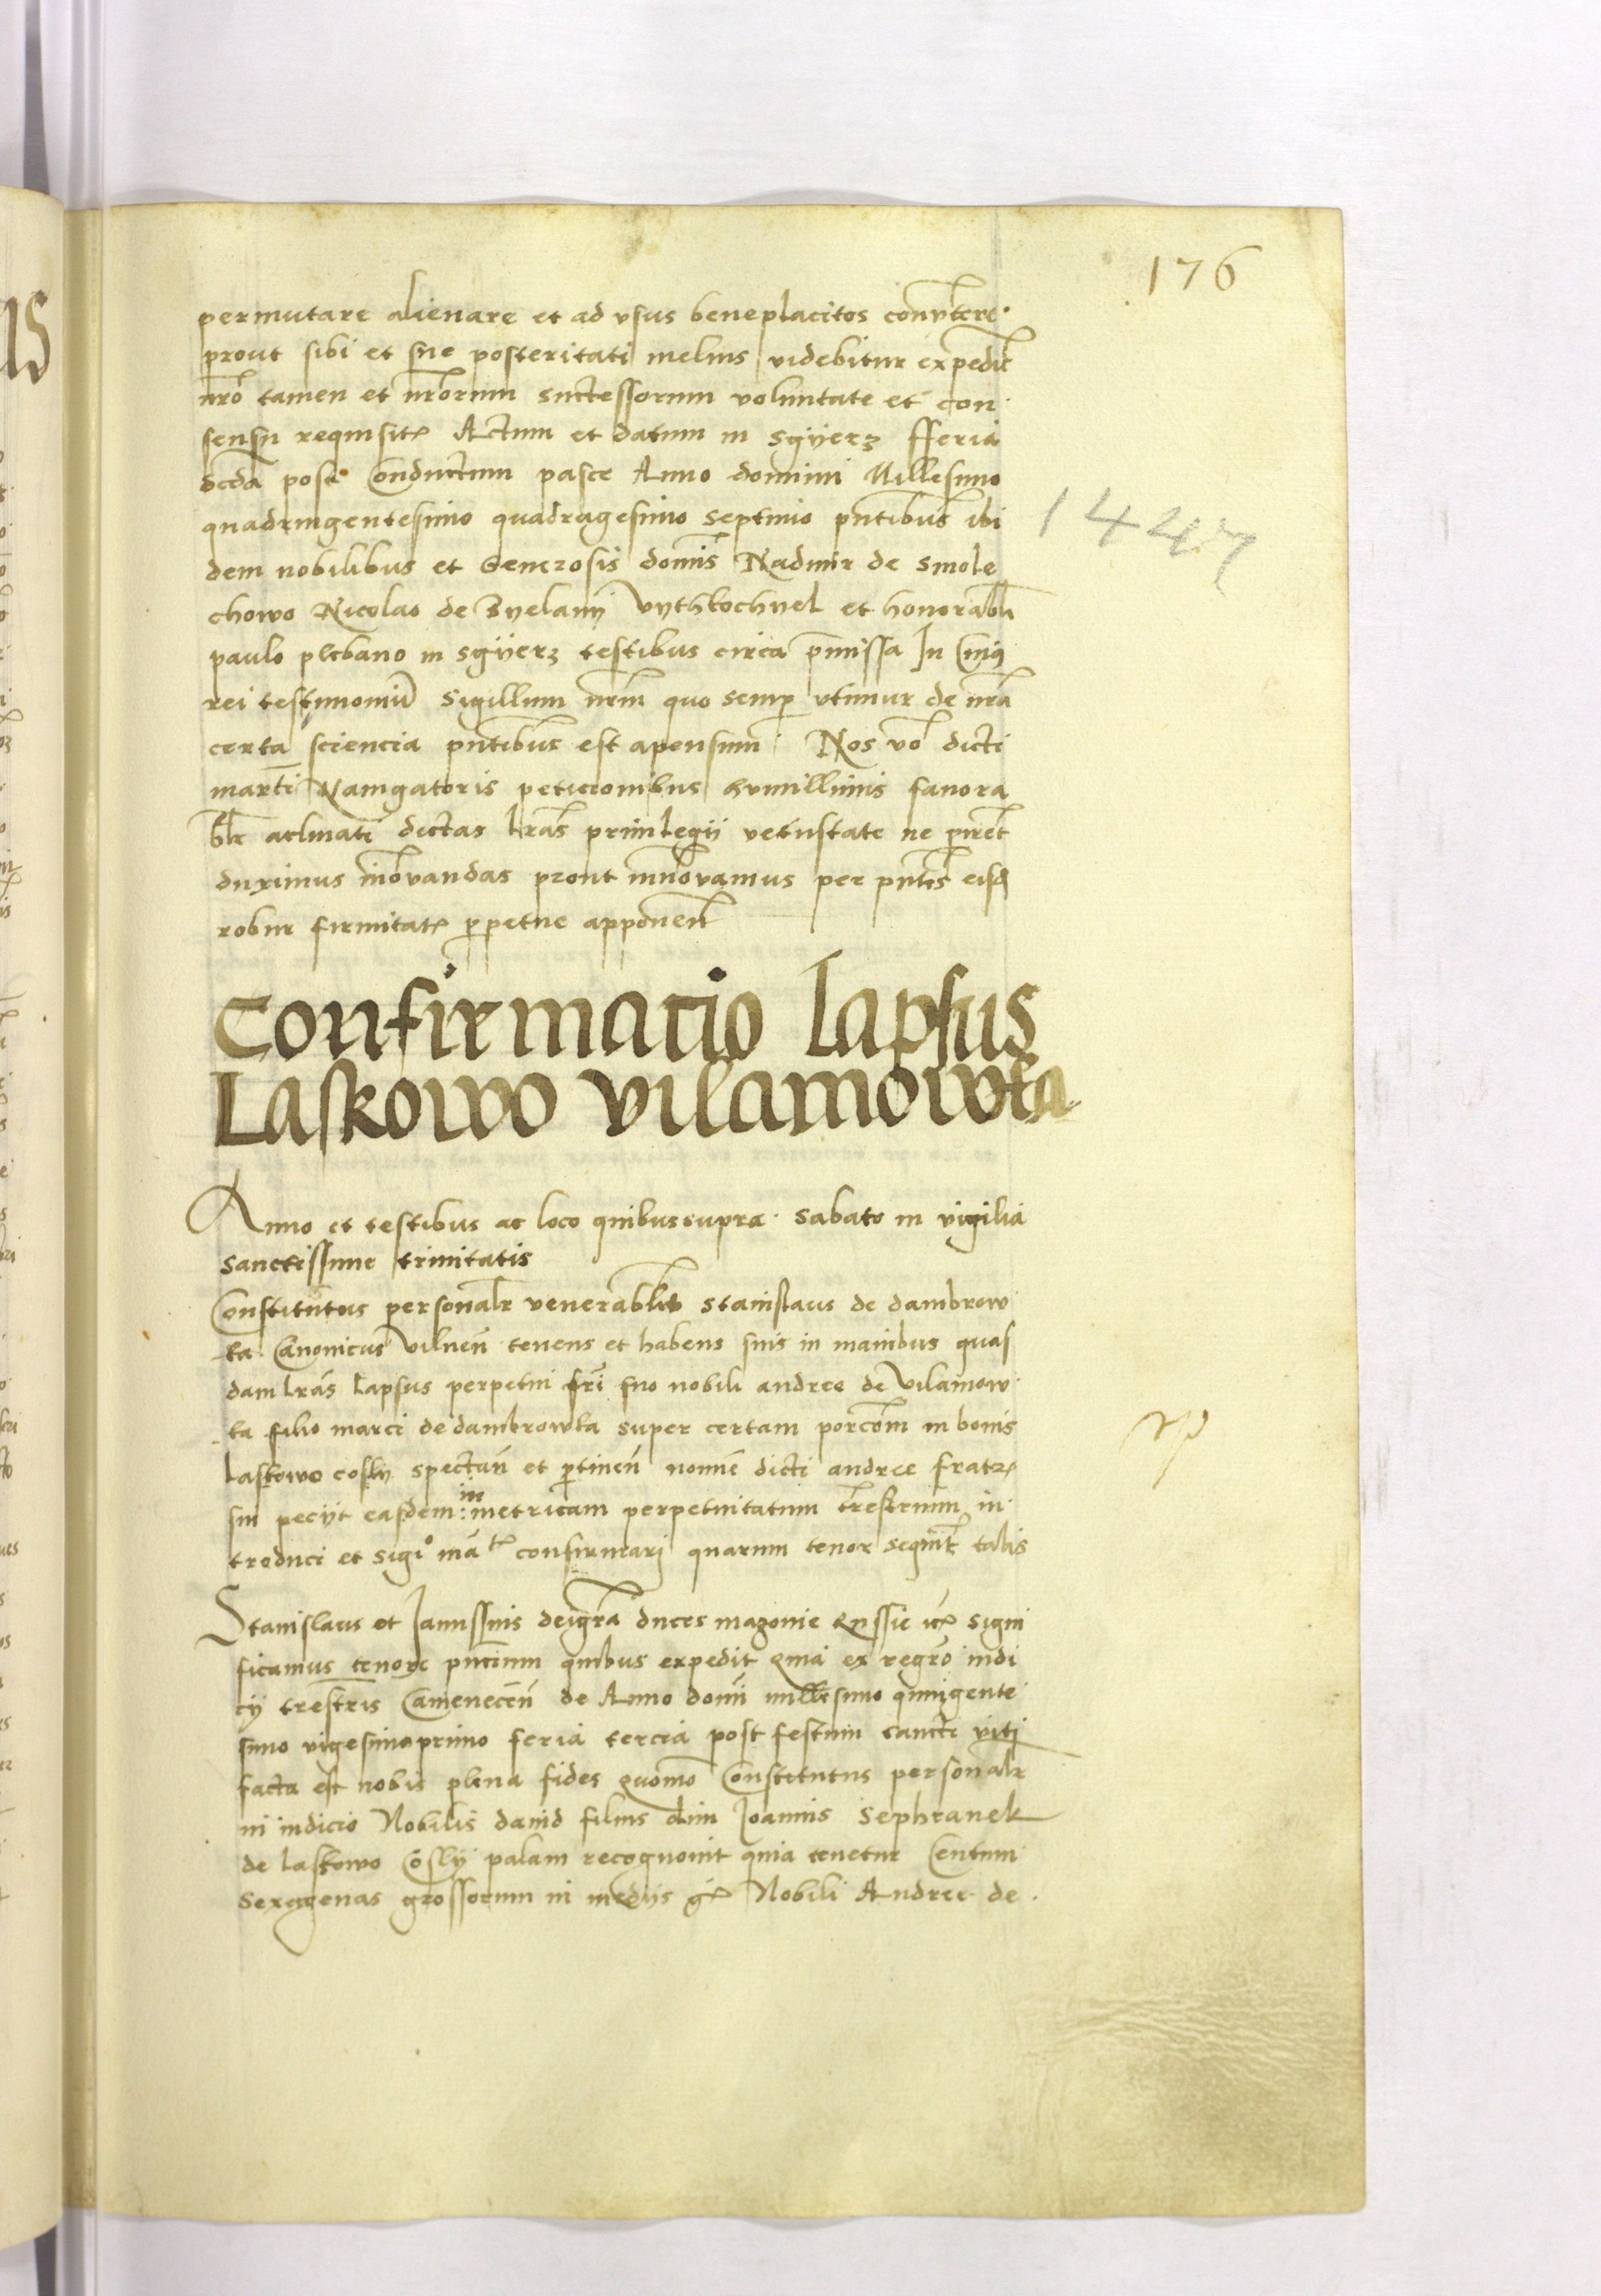 176
permutare alienare et ad vsus beneplacitos convertere
prout sibi et sue posteritati melius videbitur expedire
nro tamen et nrorum successorum voluntate et con
sensu requisitis Actum et datum in Sgyerz fferia
scda post Conductum pasce Anno domini Millesimo
quadringentesimo quadragesimo septimo pntibus ibi
1447
dem nobilibus et Generosis domis Nadmir de Smole
chowo Nicolao de Byelany Vythkochyel et honorabli
paulo plebano in Sgyerz testibus circa pmissa In Cuius
rei testimonium Sigillum nrm quo semp vtimur de nra
certa sciencia pntibus est apensum Nos vo dicti
marti Nauigatoris peticionibus humillimis fauora
blr aclinati dictas lras priuilegii vetustate ne piret
duximus inovandas prout innovamus per pntes eisd
robur firmitatis ppetue apponen
Confirmacio Lapsus
Laskowo vilamowta
Anno et testibus ac loco quibus supra Sabato in vigilia
Sanctissime trinitatis
Constitutus personalr venerablis Stanislaus de dambrow
ka Canonicus Vilnen tenens et habens suis in manibus quas
dam lras Lapsus perpetui fri suo nobili andree de Vilamow
ta filio marci de dambrowka super certam porcom in bonis
Laskowo cosly spectan et ptinen nomine dicti andree fratris
sui peciit easdem in metricam perpetuitatum trestrium in
troduci et confirmari quarum tenor sequitr talis
Stanislaus et Janussius dei gra duces mazouie Russie etc signi
ficamus tenore pncium quibus expedit quia ex regro iudi
cij trestris Camenecen de Anno domi millesimo quingente
simo vigesimoprimo feria tercia post festum sancti viti
facta est nobis plena fides quomo Constitutus personalr
in iudicio Nobilis dauid filius olim Joannis Sephranek
de Laskowo Cosly palam recognouit quia tenetur Centum
Sexagenas grossorum in mediis gr Nobili Andree de